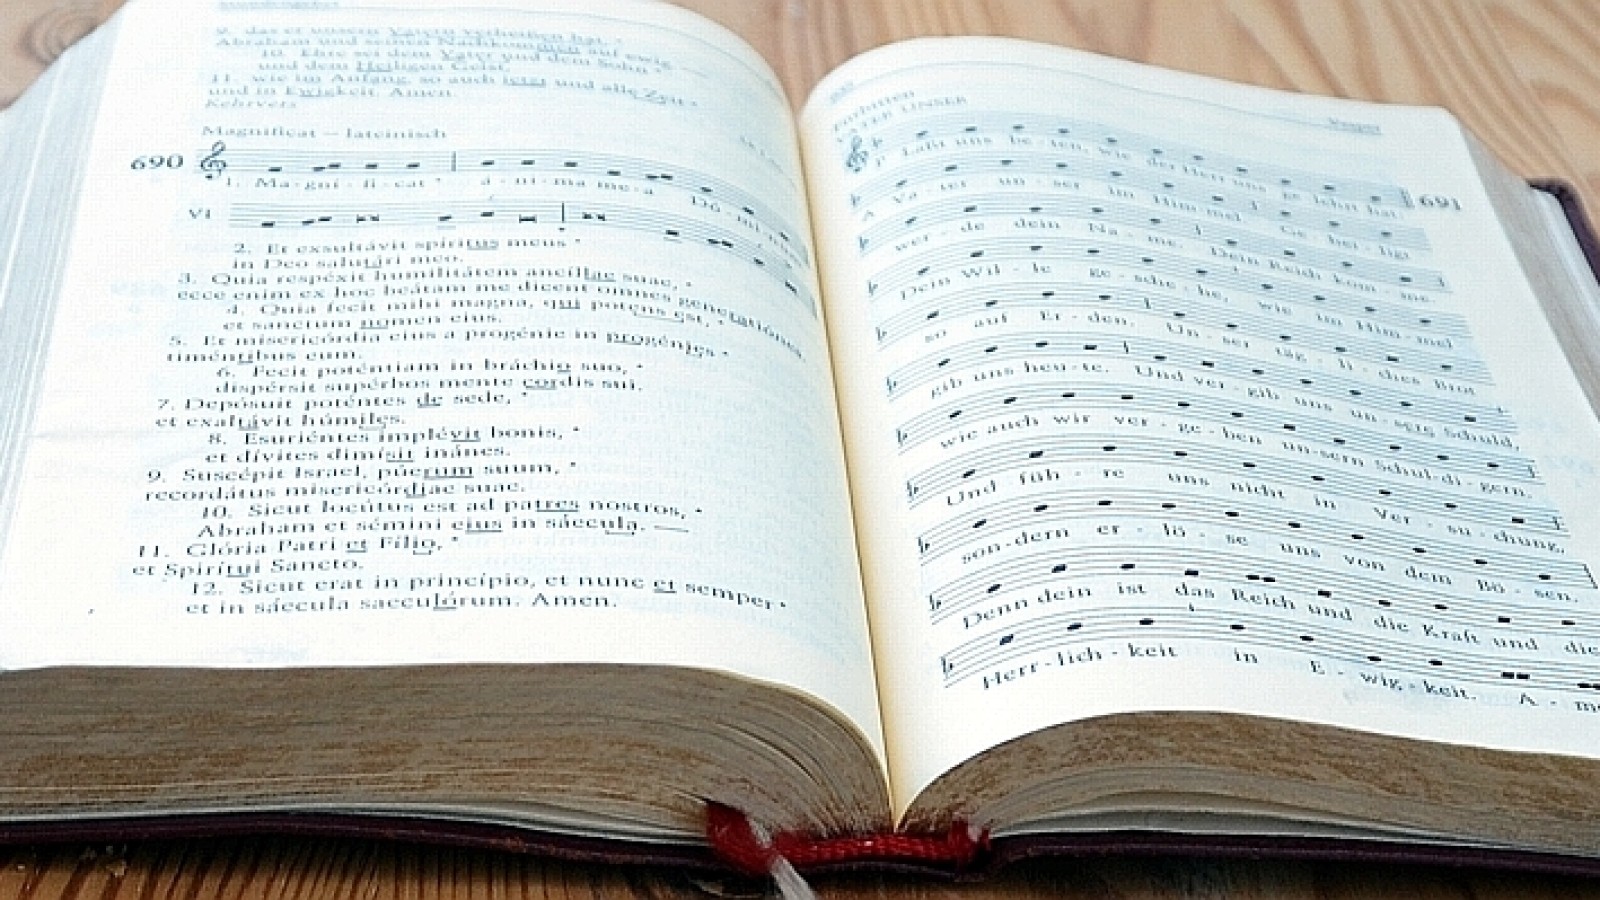 9. das er unsern Vätern verheißen hat, *
Abraham und seinen Nachkommen auf ewig. —
10. Ehre sei dem Vater und dem Sohn *
und dem Heiligen Geist,
11. wie im Anfang, so auch jetzt und alle Zeit *
und in Ewigkeit. Amen.
Kehrvers
Magnificat – lateinisch
690
1. Ma-gni-fi-cat * á-ni-ma me-a Dó-mi-num
VI
2. Et exsultávit spíritus meus *
in Deo salutári meo.
3. Quia respéxit humilitátem ancíllae suae, *
ecce enim ex hoc beátam me dicent omnes generatiónes.
4. Quia fecit mihi magna, qui potens est, *
et sanctum nomen eius.
5. Et misericórdia eius a progénie in progénies *
timéntibus eum.
6. Fecit poténtiam in bráchio suo, *
dispérsit supérbos mente cordis sui.
7. Depósuit poténtes de sede, *
et exaltávit húmiles.
8. Esuriéntes implévit bonis, *
et dívites dimísit inánes.
9. Suscépit Israel, púerum suum, *
recordátus misericórdiae suae.
10. Sicut locútus est ad patres nostros, *
Abraham et sémini eius in sáecula. —
11. Glória Patri et Fílio, *
et Spirítui Sancto.
12. Sicut erat in princípio, et nunc et semper *
et in sáecula saeculórum. Amen.
Vesper
Fürbitten
VATER UNSER
P Laßt uns be-ten, wie der Herr uns ge-lehrt hat.
691
A Va - ter un - ser im Him-mel, Ge - hei - ligt
wer - de dein Na - me. Dein Reich kom - me.
Dein Wil - le ge - sche - he, wie im Him - mel
so auf Er - den. Un - ser täg - li - ches Brot
gib uns heu-te. Und ver - gib uns un - sere Schuld,
wie auch wir ver - ge - ben un-sern Schul-di - gern.
Und füh - re uns nicht in Ver - su - chung,
son-dern er - lö - se uns von dem Bö - sen.
Denn dein ist das Reich und die Kraft und die
Herr-lich - keit in E - wig-keit. A - me